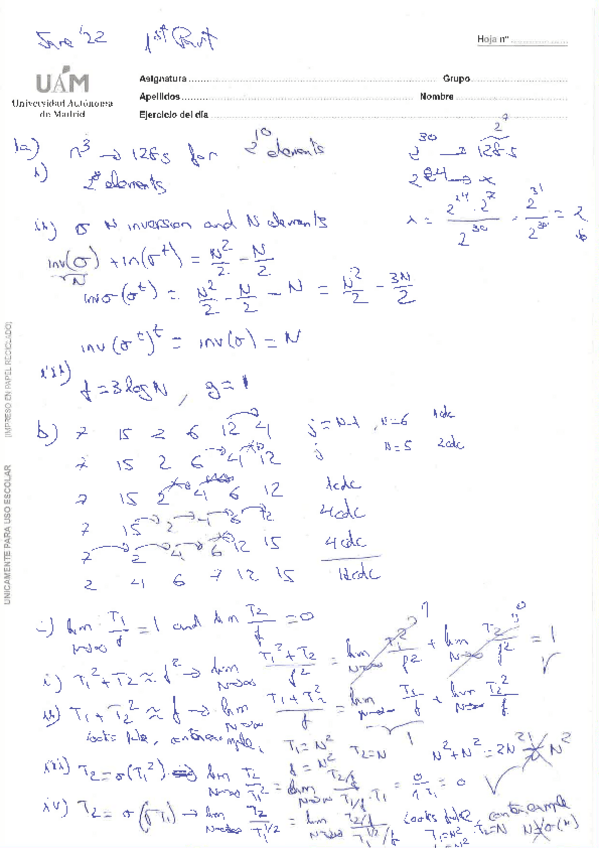 June '22 1st Part
Hoja nº
UAM
Universidad Autónoma
de Madrid
Asignatura Grupo
Apellidos Nombre
Ejercicio del día
1a) n³ → 128s for 2^10 elements
i) 2^8 elements
2^30 → 128s 2^7
2^24 → x
x = 2^24 · 2^7 / 2^30 = 2^31 / 2^30 = 2 s
ii) σ N inversion and N elements
inv(σ) + in(σ^t) = N²/2 - N/2
N
inv σ(σ^t) = N²/2 - N/2 - N = N²/2 - 3N/2
inv(σ^t)^t = inv(σ) = N
iii) f = 3logN, g = 1
b) 7 15 2 6 12 4 j = N-1, N=6 1cdc
7 15 2 6 4 12 j N=5 2cdc
7 15 2 4 6 12 1cdc
7 15 2 4 6 12 4cdc
7 2 4 6 12 15 4cdc
2 4 6 7 12 15 12cdc
c) lim N→∞ T1/f = 1 and lim T2/f = 0
i) T1² + T2 ≈ f² → lim N→∞ (T1² + T2)/f² = lim N→∞ T1²/f² + lim N→∞ T2/f² = 1 ✓
1 0
ii) T1 + T2² ≈ f → lim N→∞ (T1 + T2²)/f = lim N→∞ T1/f + lim N→∞ T2²/f
looks false, counterexample, T1 = N² T2 = N 1 N² + N² = 2N² ≈ N²
f = N²
iii) T2 = o(T1²) → lim N→∞ T2/T1² = lim N→∞ (T2/f)/(T1/f · T1) = 0/(1·T1) = 0 ✓
iv) T2 = o(√T1) → lim N→∞ T2/T1^1/2 = lim N→∞ (T2/f)/(T1^1/2/f) looks false, counterexample
T1 = N² T2 = N N ≠ o(N)
UNICAMENTE PARA USO ESCOLAR (IMPRESO EN PAPEL RECICLADO)